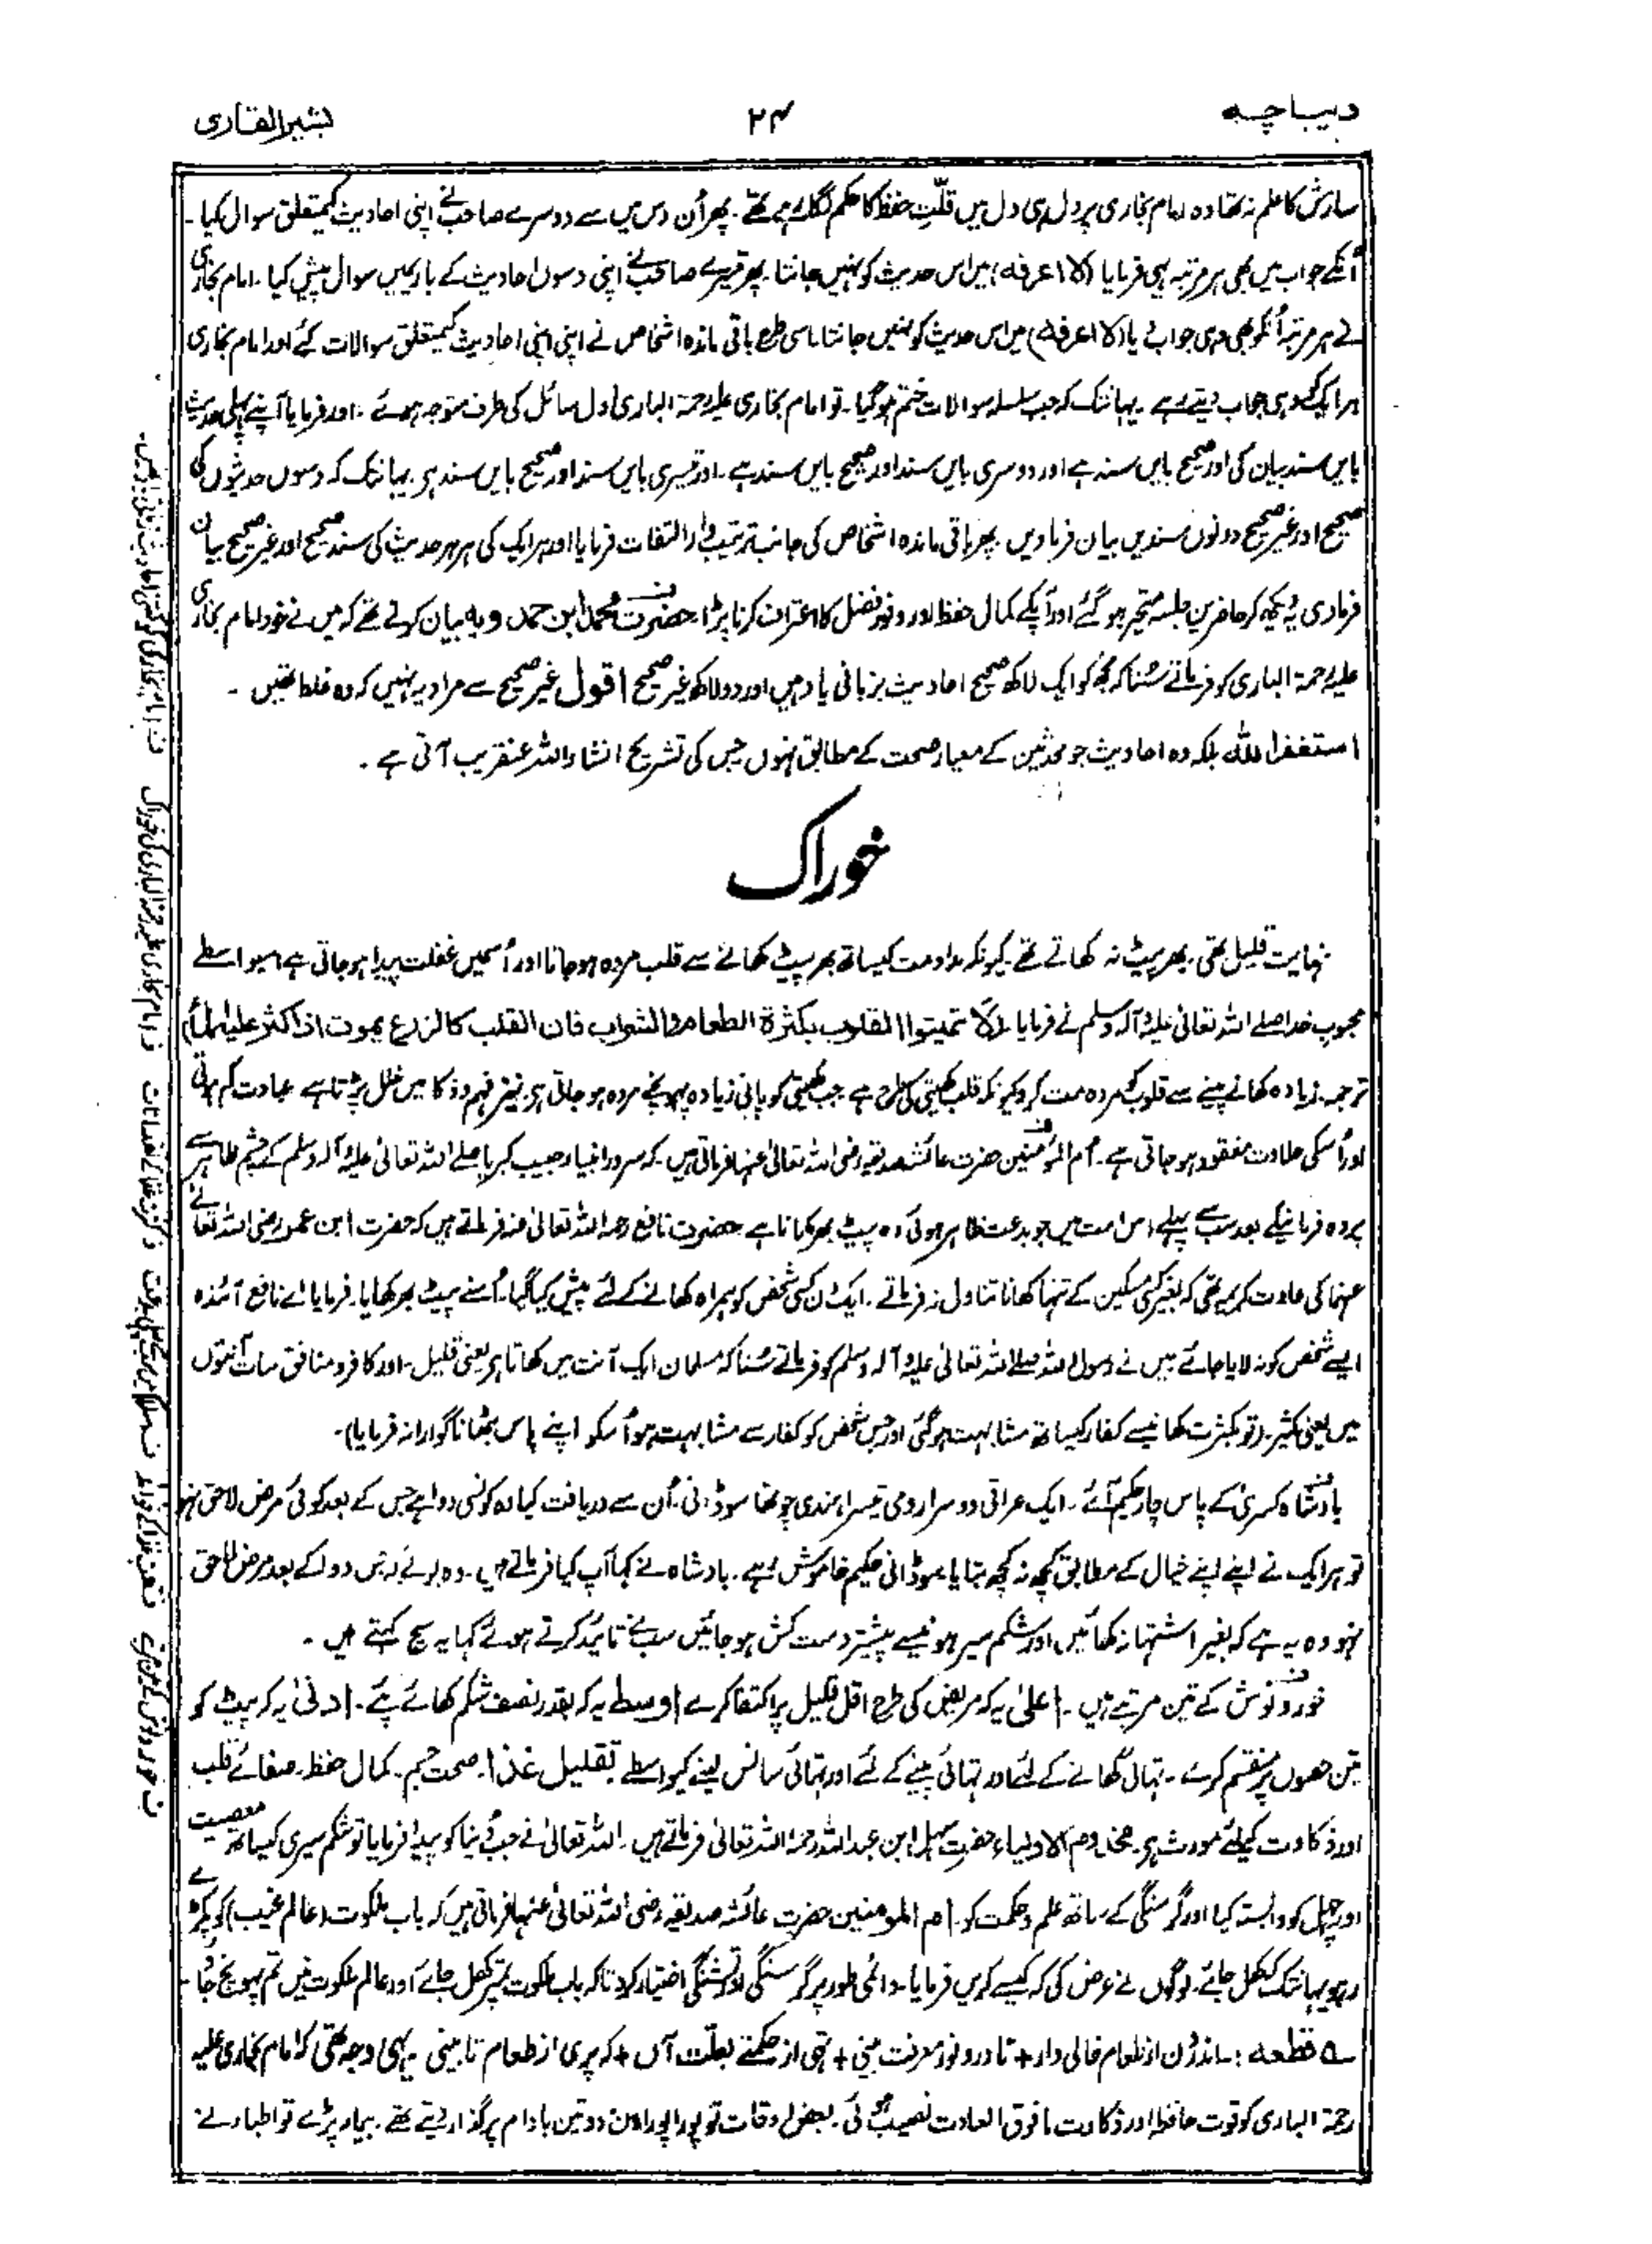 دیباچہ
۲۴
بشیر القاری
سازش کا علم نہ تھا وہ امام بخاری پر دل ہی دل میں قلّتِ حفظ کا حکم لگا رہے تھے۔ پھر اُن دس میں سے دوسرے صاحب نے اپنی احادیث کیمتعلق سوال کیا۔
اُنکے جواب میں بھی ہر مرتبہ یہی فرمایا (لا اعرفہ) میں اس حدیث کو نہیں جانتا۔ پھر تیسرے صاحب نے اپنی دسوں احادیث کے بارے میں سوال پیش کیا۔ امام بخاری
نے ہر مرتبہ اُنکو بھی وہی جواب دیا (لا اعرفہ) میں اس حدیث کو نہیں جانتا۔ اسی طرح باقی ماندہ اشخاص نے اپنی اپنی احادیث کیمتعلق سوالات کئے اور امام بخاری
ہر ایک کو وہی جواب دیتے رہے۔ یہانتک کہ جب سلسلہ سوالات ختم ہوگیا۔ تو امام بخاری علیہ رحمۃ الباری اول سائل کی طرف متوجہ ہوئے۔ اور فرمایا آپنے پہلی حدیث
بایں سند بیان کی اور صحیح بایں سند ہے اور دوسری بایں سند اور صحیح بایں سند ہے۔ اور تیسری بایں سند اور صحیح بایں سند ہی۔ یہانتک کہ دسوں حدیثوں کی
صحیح اور غیر صحیح دونوں سندیں بیان فرمادیں۔ پھر باقی ماندہ اشخاص کی جانب ترتیب وار التفات فرمایا اور ہر ایک کی ہر ہر حدیث کی سند صحیح اور غیر صحیح بیان
فرمادی یہ دیکھ کر حاضرین جلسہ متحیر ہوگئے اور آپکے کمال حفظ اور وفور فضل کا اعتراف کرنا پڑا۔ حضرت محمد ابن حمدویہ بیان کرتے تھے کہ میں نے خود امام بخاری
علیہ رحمۃ الباری کو فرماتے سُنا کہ مجھ کو ایک لاکھ صحیح احادیث بزبانی یاد ہیں اور دو لاکھ غیر صحیح اقول غیر صحیح سے مراد یہ نہیں کہ وہ غلط تھیں۔
استغفر اللہ بلکہ وہ احادیث جو محدثین کے معیار صحت کے مطابق نہوں جس کی تشریح انشاء اللہ عنقریب آتی ہے۔
خوراک
نہایت قلیل تھی۔ بھر پیٹ نہ کھاتے تھے۔ کیونکہ مداومت کیساتھ بھر پیٹ کھانے سے قلب مردہ ہوجاتا اور اُسمیں غفلت پیدا ہوجاتی ہے اسیواسطے
محبوب خدا صلے اللہ تعالیٰ علیہ وآلہ وسلم نے فرمایا۔ (لا تمیتوا القلوب بکثرۃ الطعام والشراب فان القلب کالزرع یموت اذا کثر علیہ الماء)
ترجمہ: زیادہ کھانے پینے سے قلوب کو مردہ مت کرو کیونکہ قلب کھیتی کی طرح ہے جب کھیتی کو پانی زیادہ پہونچے مردہ ہوجاتی ہی۔ نیز فہم و ذکا میں خلل پڑتا ہے عبادت کم ہوتی
اور اُسکی حلاوت مفقود ہوجاتی ہے۔ ام المؤمنین حضرت عائشہ صدیقہ رضی اللہ تعالیٰ عنہا فرماتی ہیں۔ کہ سرور انبیاء حبیب کبریا صلے اللہ تعالیٰ علیہ وآلہ وسلم کے چشم ظاہر سے
پردہ فرمانیکے بعد سب سے پہلے اس امت میں جو بدعت ظاہر ہوئی وہ پیٹ بھر کھانا ہے حضرت نافع رحمہ اللہ تعالیٰ عنہ فرماتے ہیں کہ حضرت ابن عمر رضی اللہ تعالے
عنہما کی عادت کریمہ تھی کہ بغیر کسی مسکین کے تنہا کھانا تناول نہ فرماتے۔ ایک دن کسی شخص کو ہمراہ کھانے کے لئے پیش کیا گیا۔ اُسنے پیٹ بھر کھایا۔ فرمایا اے نافع آئندہ
ایسے شخص کو نہ لایا جائے میں نے رسول اللہ صلے اللہ تعالیٰ علیہ وآلہ وسلم کو فرماتے سُنا کہ مسلمان ایک آنت میں کھاتا ہی یعنی قلیل۔ اور کافر و منافق سات آنتوں
میں یعنی کثیر۔ (تو بکثرت کھانیسے کفار کیساتھ مشابہت ہوگئی اور جس شخص کو کفار سے مشابہت ہو اُسکو اپنے پاس بٹھانا گوارا نہ فرمایا)۔
بادشاہ کسریٰ کے پاس چار حکیم آئے۔ ایک عراقی دوسرا رومی تیسرا ہندی چوتھا سوڈانی۔ اُن سے دریافت کیا وہ کونسی دوا ہے جس کے بعد کوئی مرض لاحق نہو
تو ہر ایک نے اپنے اپنے خیال کے مطابق کچھ نہ کچھ بتایا۔ سوڈانی حکیم خاموش رہے۔ بادشاہ نے کہا آپ کیا فرماتے ہیں۔ وہ بولے جس دوا کے بعد مرض لاحق
نہو وہ یہ ہے کہ بغیر اشتہا نہ کھائیں اور شکم سیر ہونیسے پیشتر دست کش ہوجائیں سب نے تائید کرتے ہوئے کہا یہ سچ کہتے ہیں۔
خورد و نوش کے تین مرتبے ہیں۔ اعلیٰ یہ کہ مریض کی طرح اقل قلیل پر اکتفا کرے اوسط یہ کہ بقدر نصف شکم کھائے پئے۔ ادنیٰ یہ کہ پیٹ کو
تین حصوں پر منقسم کرے۔ تہائی کھانے کے لئے اور تہائی پینے کے لئے اور تہائی سانس لینے کیواسطے تقلیل غذا۔ صحت جسم۔ کمال حفظ۔ صفائے قلب
اور ذکاوت کیلئے مورث ہی۔ مخدوم الاولیاء حضرت سہل ابن عبداللہ رحمہ اللہ تعالیٰ فرماتے ہیں۔ اللہ تعالیٰ نے جب دُنیا کو پیدا فرمایا تو شکم سیری کیساتھ معصیت
اور جہل کو وابستہ کیا اور گرسنگی کے ساتھ علم و حکمت کو۔ ام المومنین حضرت عائشہ صدیقہ رضی اللہ تعالیٰ عنہا فرماتی ہیں کہ باب ملکوت (عالم غیب) کو پکڑے
رہو یہانتک کہ کھل جائے۔ لوگوں نے عرض کی کہ کیسے کریں فرمایا۔ دائمی طور پر گرسنگی اور تشنگی اختیار کرو تاکہ باب ملکوت تمپر کھل جائے اور عالم ملکوت میں تم پہونچ جاؤ۔
قطعہ: اندرون از طعام خالی دار + تا درو نور معرفت بینی + تہی از حکمتے بعلت آں + کہ پری از طعام تا بینی یہی وجہ تھی کہ امام بخاری علیہ
رحمۃ الباری کو قوت حافظہ اور ذکاوت مافوق العادت نصیب ہوئی۔ بعض اوقات تو پورا پورا دن دو تین بادام پر گذار دیتے تھے۔ بیمار پڑے تو اطباء نے